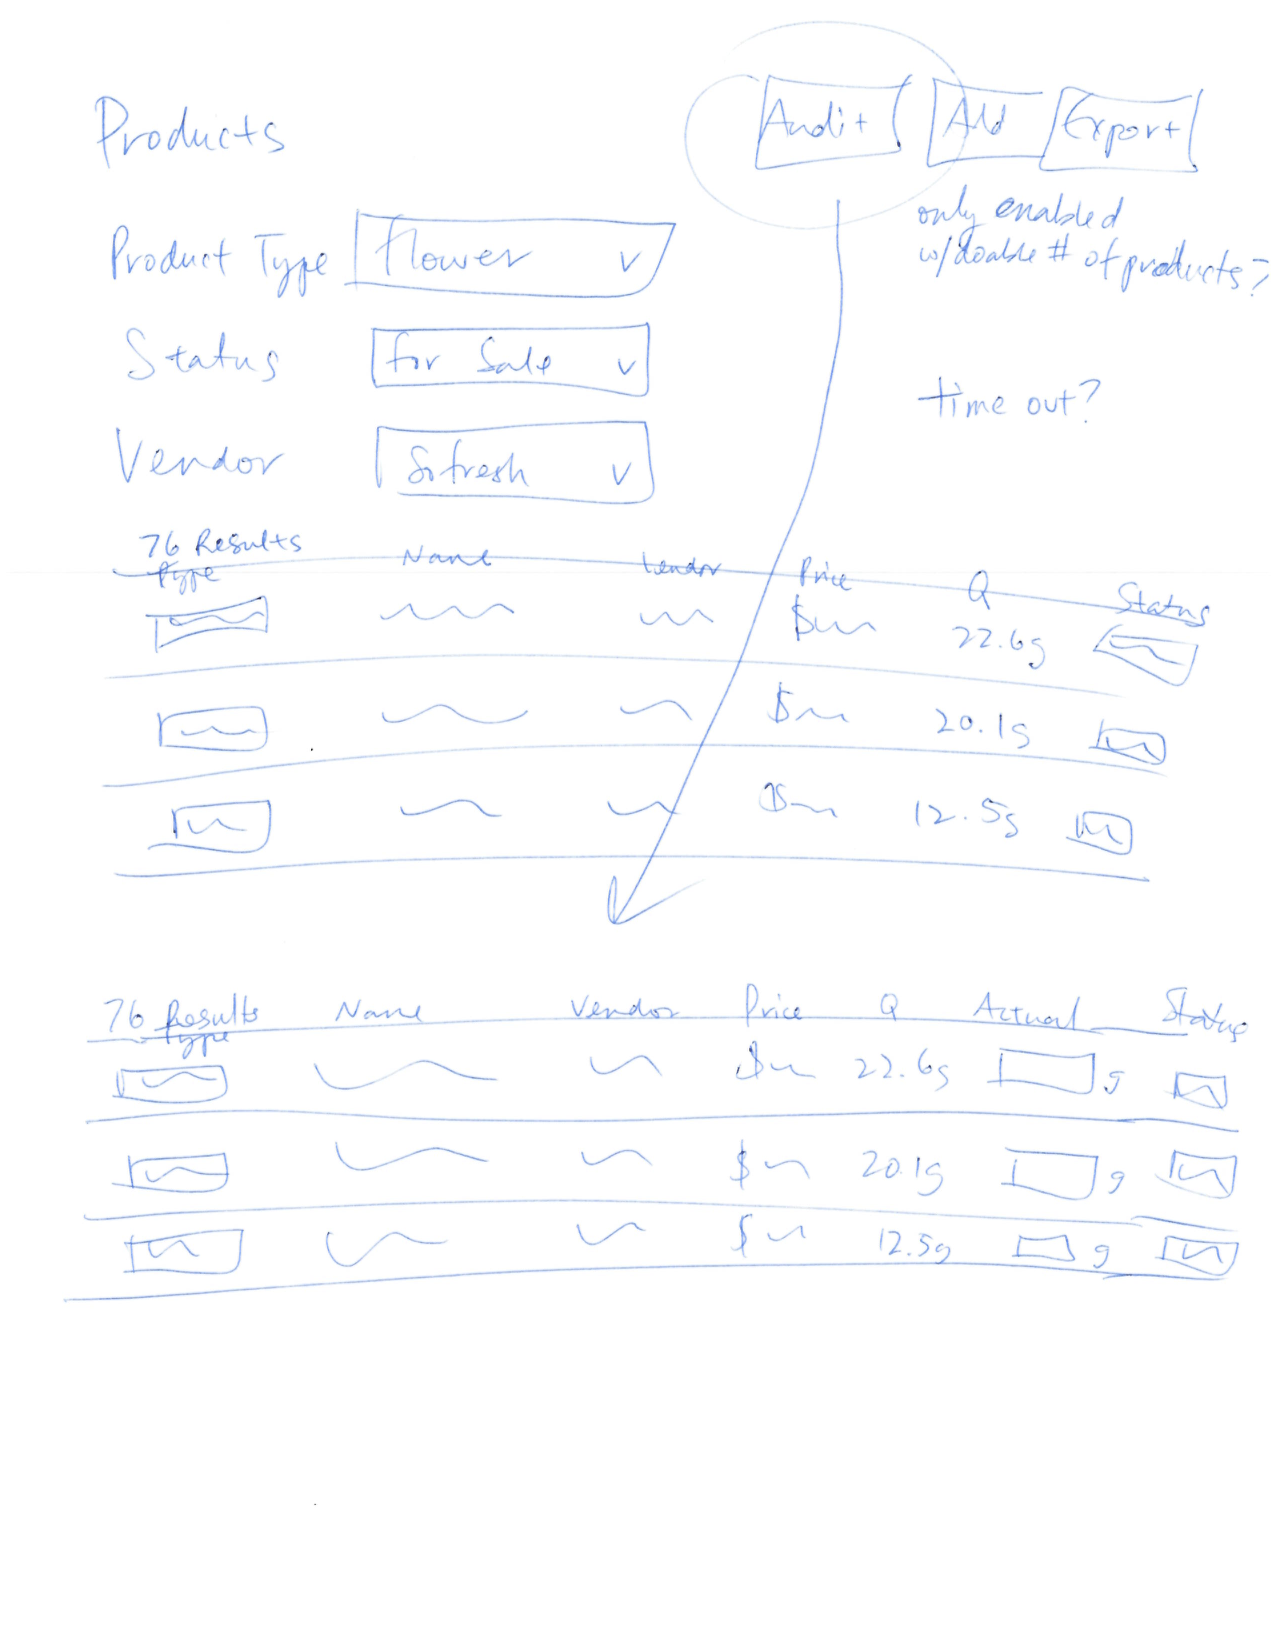 Products
Audit
Add
Export
only enabled
w/doable # of products?
Product Type
Flower
Status
For Sale
time out?
Vendor
Sofresh
76 Results
Type Name Vendor Price Q Status
$ 22.6g
$ 20.1g
$ 12.5g
76 Results
Type Name Vendor Price Q Actual Status
$ 22.6g g
$ 20.1g g
$ 12.5g g